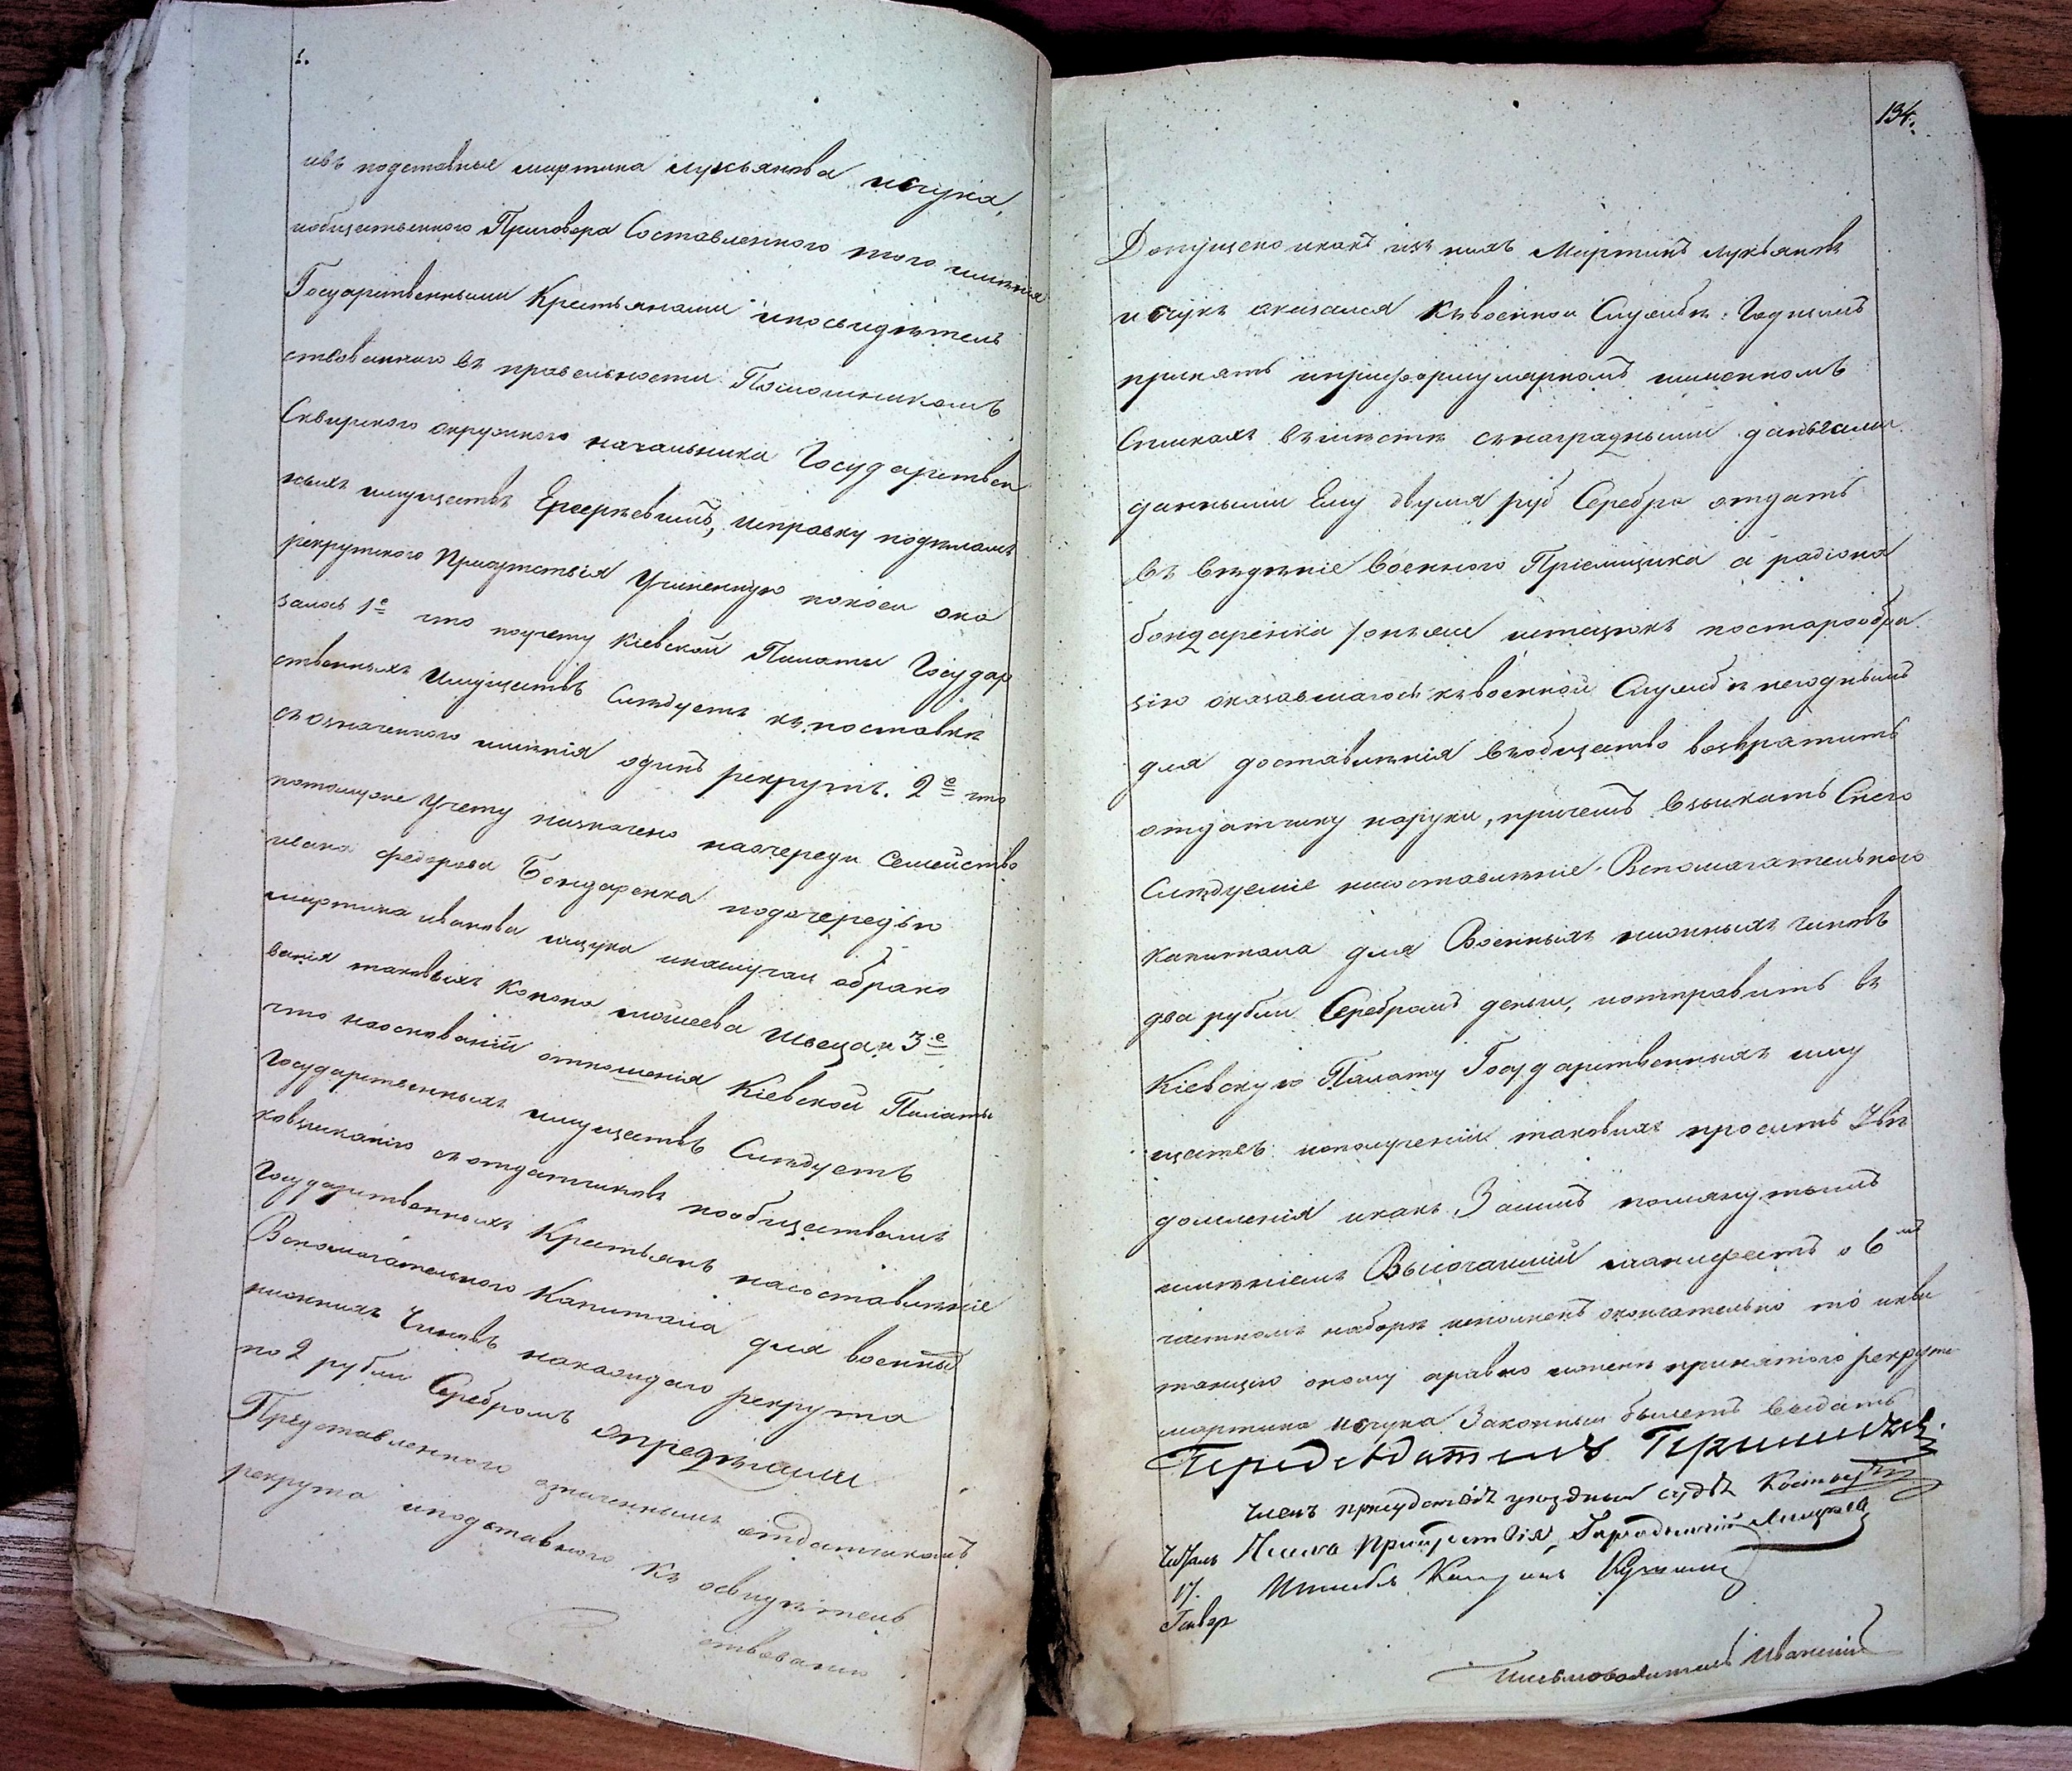 ивъ подставныя мартина лукьянова ищука,
иобщественного Приговора Составленного того имѣнія
Государственными Крестьянами ипосвидѣтель
ствованного въ правельности Помошникомъ
Сквирского окружного начальника Государствен
ныхъ имуществъ исправку подѣламъ
рекрутского Присутствія Учиненную покоеи ока
залось 1е что поучету Кіевской Палаты Государ
ственныхъ Имуществъ Слѣдуетъ къ поставкѣ
съ означенного имѣнія одинъ рекрутъ. 2е что
потомуже Учету назначено наочереди Семейство
ивана федорова Бондаренка подочередью
мартина иванова ищука инаслучаи обрако
ванія таковыхъ Конона мойсеева Швеца, и 3е
что наоснованіи отношенія Кіевской Палаты
Государственныхъ имуществъ Слѣдуетъ
ковзысканію съ отдатчиковъ пообществамъ
Государственныхъ Крестьянъ насоставленіе
Вспомогательного Капитала для военны
нижнихъ Чиновъ накаждаго рекрута
по 2 рубли Серебромъ опредѣлили
Представленного означеннымъ отдатчикомъ
рекрута иподставного къ освидѣтель
ствованію
134.
Допущено икакъ изъ нихъ Мартинъ лукьяновъ
ищукъ оказался къ военной Службѣ Годнымъ
принять иприформулярномъ именномъ
Спискахъ вмѣстѣ съ наградными деньгами
данными Ему двумя руб Серебра отдать
въ вѣденіе военного Пріемщика а
бондаренка
зію оказавшагося къ военной Службѣ негоднымъ
для доставленія вобщество возвратить
отдатчику наруки, причемъ взыскать Снего
Слѣдуемые насоставленіе Вспомагательного
капитала для Военныхъ нижныхъ чиновъ
два рубли Серебромъ деньги, иотправить въ
Кіевскую Палату Государственныхъ иму
ществъ иополученіи таковыхъ просить Увѣ
домленія икакъ Засимъ помянутымъ
имѣніемъ Высочайшій манифестъ о 6мъ
частномъ наборѣ исполненъ окончательно то икви
танцію оному аравно женѣ принятого рекрута
мартина ищука Законный билетъ выдать
Председатель
Членъ присудствія уездный судья
Читалъ
17.
Генвар
Письмоводитель